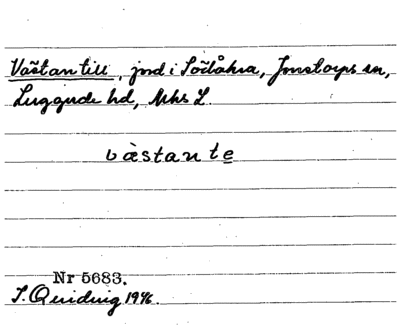 Västan till, jord i Södåkra, Jonstorps sn,
Luggude hd, Mhs L.
vàstante
Nr 5683.
S. Quiding 1946.